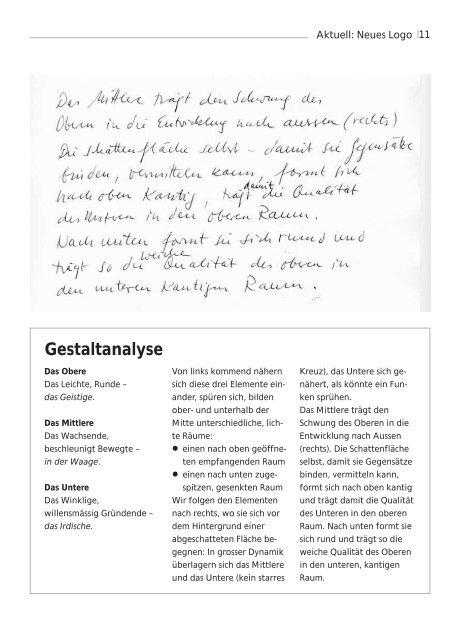 Aktuell: Neues Logo 11
Das Mittlere trägt den Schwung des
Obern in die Entwicklung nach aussen (rechts)
Die Schattenfläche selbst – damit sie Gegensätze
binden, vermitteln kann, formt sich
nach oben kantig, trägt damit die Qualität
des Unteren in den oberen Raum.
Nach unten formt sie sich rund und
trägt so die weiche Qualität des oberen in
den unteren kantigen Raum.
Gestaltanalyse
Das Obere
Das Leichte, Runde –
das Geistige.
Das Mittlere
Das Wachsende,
beschleunigt Bewegte –
in der Waage.
Das Untere
Das Winklige,
willensmässig Gründende –
das Irdische.
Von links kommend nähern
sich diese drei Elemente ein-
ander, spüren sich, bilden
ober- und unterhalb der
Mitte unterschiedliche, lich-
te Räume:
● einen nach oben geöffne-
ten empfangenden Raum
● einen nach unten zuge-
spitzen, gesenkten Raum
Wir folgen den Elementen
nach rechts, wo sie sich vor
dem Hintergrund einer
abgeschatteten Fläche be-
gegnen: In grosser Dynamik
überlagern sich das Mittlere
und das Untere (kein starres
Kreuz), das Untere sich ge-
nähert, als könnte ein Fun-
ken sprühen.
Das Mittlere trägt den
Schwung des Oberen in die
Entwicklung nach Aussen
(rechts). Die Schattenfläche
selbst, damit sie Gegensätze
binden, vermitteln kann,
formt sich nach oben kantig
und trägt damit die Qualität
des Unteren in den oberen
Raum. Nach unten formt sie
sich rund und trägt so die
weiche Qualität des Oberen
in den unteren, kantigen
Raum.